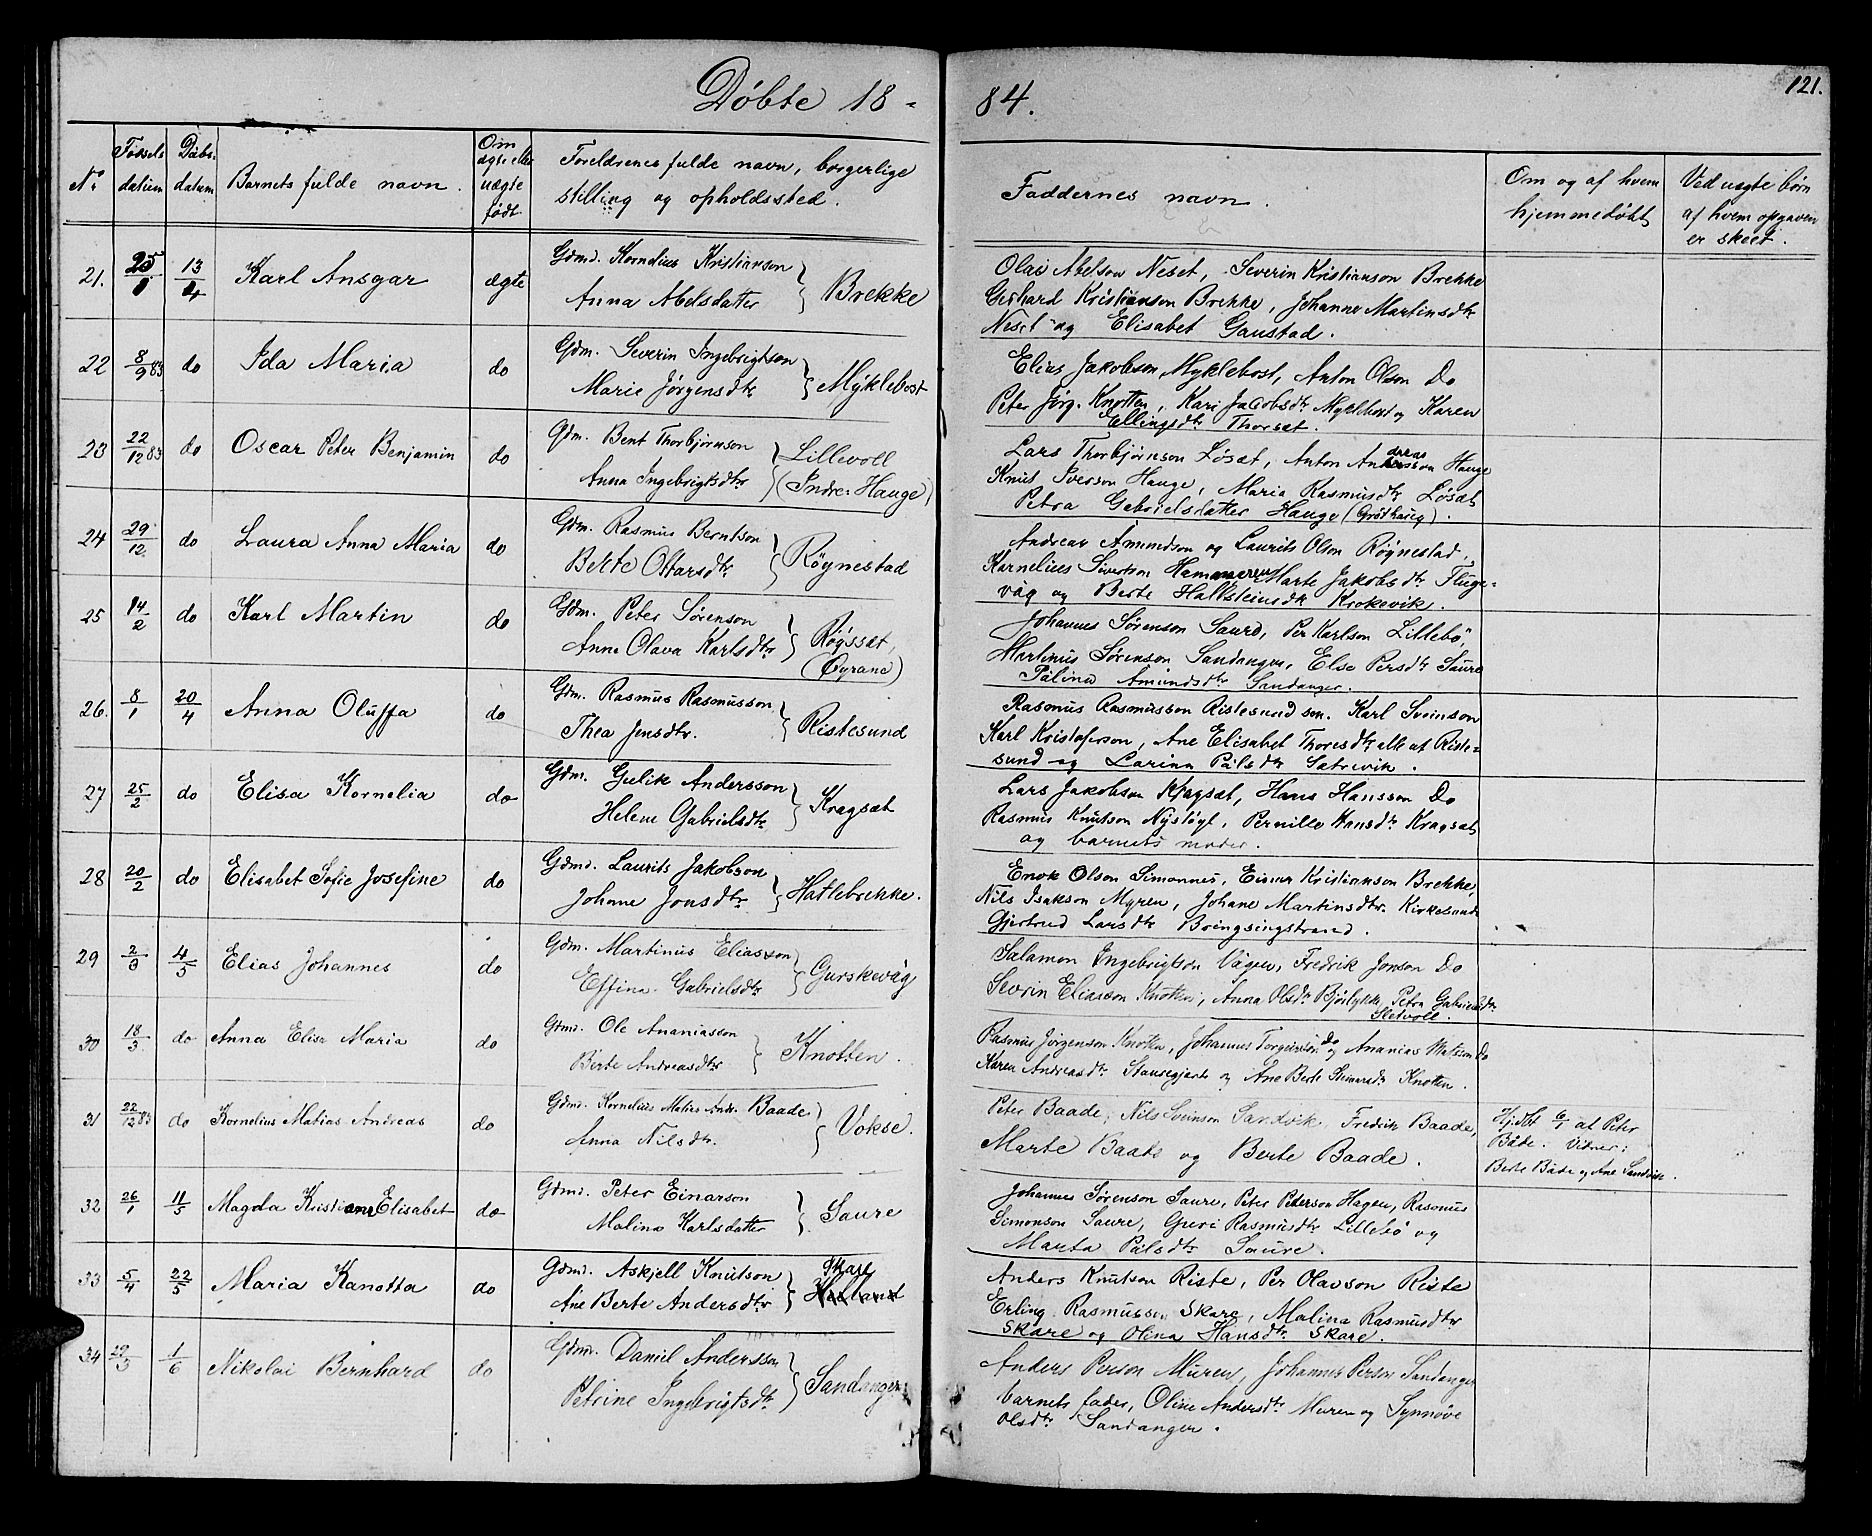 Døbte 18-84.
121.
No
Fødsels datum
Daabs datum
Barnets fulde navn.
Om ægte eller uægte født
Forældrenes fulde navn, borgerlige stilling og opholdssted.
Faddernes navn.
Om og af hvem hjemmedøbt
Ved uægte børn af hvem opgaven er skeet.
21. 25/1 13/4 Karl Ansgar ægte Gdmd. Kornelius Kristianson
Anna Abelsdatter } Brekke
Olai Abelson Neset, Severin Kristianson Brekke
Gerhard Kristianson Brekke, Johanne Martinsdtr
Neset og Elisabet Gaustad.
22 8/9 83 do Ida Maria do Gdm. Severin Ingebrigtson
Marie Jørgensdtr } Myklebost
Elias Jakobson Myklebost, Anton Olson Do
Peter Jørg. Knotten, Kari Jacobsdtr Myklebost og Karen
Ellingsdtr Thorsæt.
23 22/12 83 do Oscar Peter Benjamin do Gdm. Bent Thorbjørnson
Anna Ingebrigtsdtr } Lillevoll
(Indre-Hauge)
Lars Thorbjørnson Løsæt, Anton Andreasson Hauge
Knut Iverson Hauge, Maria Rasmusdtr Løsæt
Petra Gabrielsdatter Hauge (Grøthaug).
24 29/12 do Laura Anna Maria do Gdm. Rasmus Berntson
Berte Ottarsdtr } Røynestad
Andreas Amundson og Laurits Olson Røynestad,
Kornelius Sivertson Hammeren Marte Jakobsdtr Fluge-
våg og Berte Hallsteinsdtr Krokevik.
25 14/2 do Karl Martin do Gdm. Peter Sørenson
Anne Olava Karlsdtr } Røyssæt,
(Øyrane)
Johannes Sørenson Saure, Per Karlson Lillebø
Martinus Sørenson Sandanger, Else Persdtr Saure
Pålina Amundsdtr Sandanger.
26. 8/1 20/4 Anna Oluffa do Gdm. Rasmus Rasmusson
Thea Jensdtr. } Ristesund
Rasmus Rasmusson Ristesund sen. Karl Sveinson
Karl Kristoferson, Ane Elisabet Thoresdtr alle at Riste-
sund og Larina Pålsdtr Sætrevik.
27 25/2 do Elisa Kornelia do Gdm. Gulik Andersson
Helene Gabrielsdtr } Kragsæt
Lars Jakobson Kragsæt, Hans Hansson Do
Rasmus Knutson Nystøyl, Pernille Hansdtr Kragsæt
og barnets moder.
28 20/2 do Elisabet Sofie Josefine do Gdmd. Laurits Jakobson
Johane Jonsdtr } Hatlebrekke.
Enok Olson Simonnes, Einar Kristianson Brekke,
Nils Isakson Myren, Johane Martinsdtr. Kirkesund
Gjertrud Larsdtr Bringsingstrand.
29 2/3 4/5 Elias Johannes do Gdm. Martinus Eliasson
Effina Gabrielsdtr } Gurskevåg
Salamon Ingebrigtson Vågen, Fredrik Jonson Do
Sevrin Eliasson Knotten, Anna Olsdtr Bjørlykke, Petra Gabrielsdtr
Sletvoll.
30 18/3 do Anna Elise Maria do Gdmd. Ole Ananiasson
Berte Andreasdtr } Knotten.
Rasmus Jørgenson Knotten, Johannes Torgeirsson Do og Ananias Matsson Do
Karen Andreasdtr Stansegjerde og Ane Berte Knotten.
31 22/12 83 do Kornelius Matias Andreas do Gdmd. Kornelius Matias Andr. Baade
Anna Nilsdtr. } Vokse.
Peter Baade, Nils Sveinson Sandvik, Fredrik Baade,
Marte Baade og Berte Baade.
Hjdbt 6/1 at Peter
Både. Vidner:
Berte Både og Ane Sandvik.
32 26/1 11/5 Magda Kristiane Elisabet do Gdmd. Peter Einarson
Malina Karlsdatter } Saure
Johannes Sørenson Saure, Peter Peterson Hagen, Rasmus
Simonson Saure, Guri Rasmusdtr Lillebø og
Marta Pålsdtr Saure.
33 5/4 22/5 Maria Kanotta do Gdmd. Askjell Knutson
Ane Berte Andersdtr } Skare
Anders Knutson Riste, Per Olavson Riste
Erling Rasmusson Skare, Malina Rasmusdtr
Skare og Olina Hansdtr Skare.
34 29/3 1/6 Nikolai Bernhard do Gdm. Daniel Andersson
Petrine Ingebrigtsdtr } Sandanger
Anders Person Muren, Johannes Person Sandanger
barnets fader, Oline Andersdtr Muren og Synnøve
Olsdtr Sandanger.